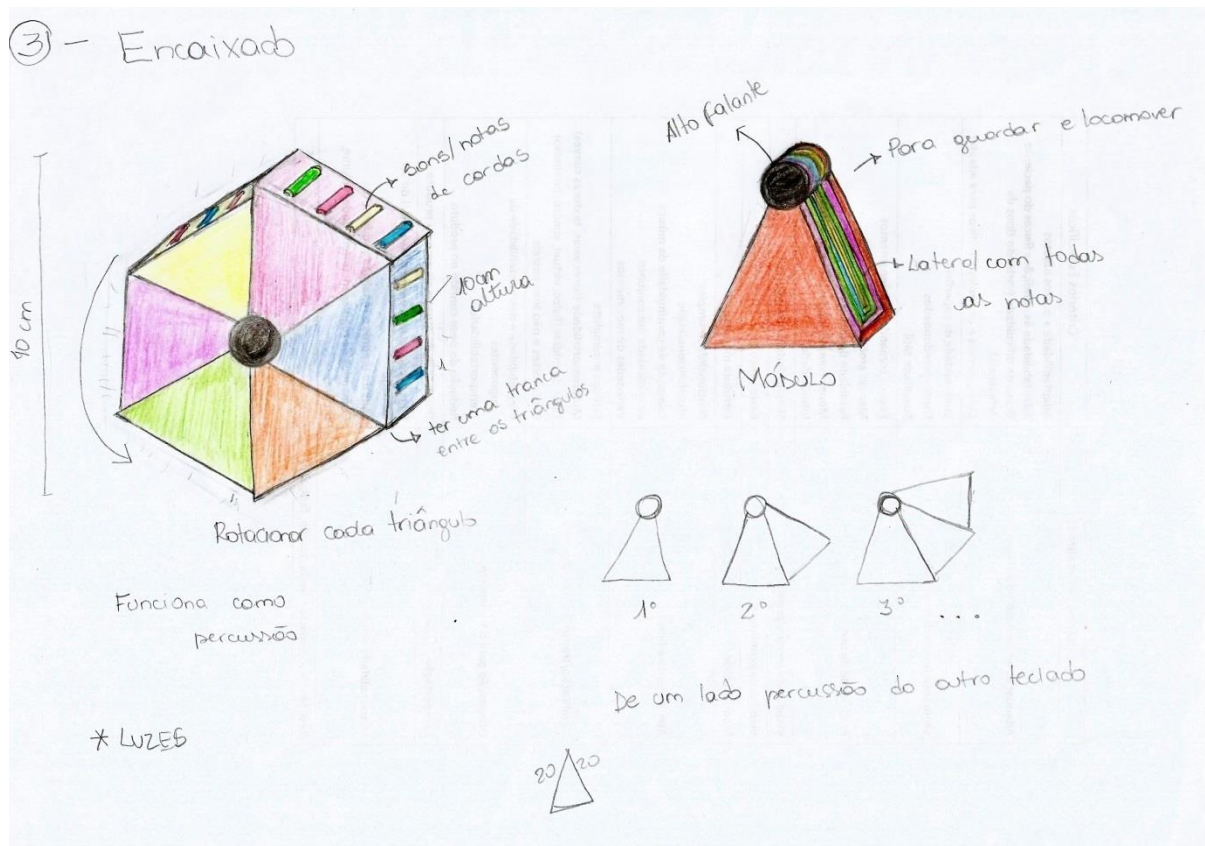 3 - Encaixado
sons/notas
de cordas
10 cm
10cm
altura
ter uma tranca
entre os triângulos
Rotacionar cada triângulo
Funciona como
percussão
* LUZES
Alto falante
Para guardar e locomover
Lateral com todas
as notas
MÓDULO
1° 2° 3° ...
De um lado percussão do outro teclado
20 20